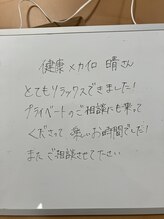 健康メカイロ 晴さん
とてもリラックスできました!
プライベートのご相談にも乗って
くださって 楽しいお時間でした!
またご相談させて下さい